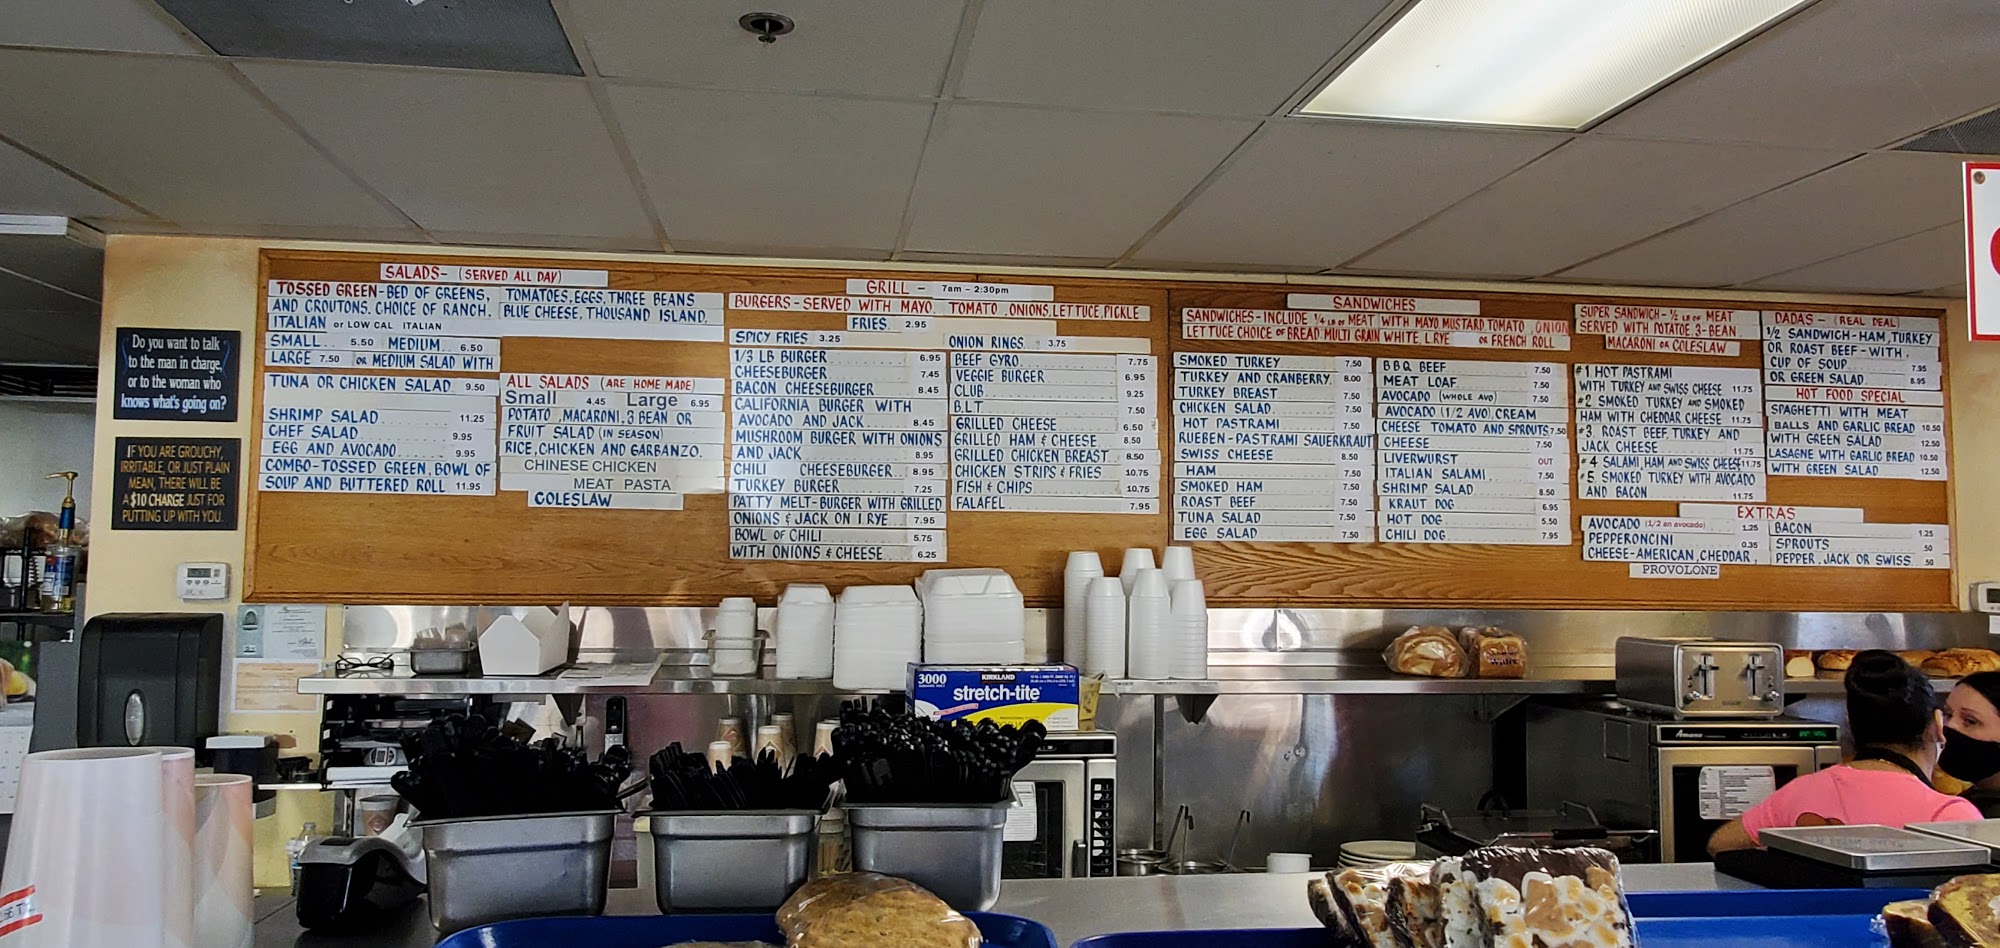 Do you want to talk
to the man in charge,
or to the woman who
knows what's going on?
IF YOU ARE GROUCHY,
IRRITABLE, OR JUST PLAIN
MEAN, THERE WILL BE
A $10 CHARGE JUST FOR
PUTTING UP WITH YOU.
SALADS- (SERVED ALL DAY)
TOSSED GREEN-BED OF GREENS, TOMATOES, EGGS, THREE BEANS
AND CROUTONS. CHOICE OF RANCH, BLUE CHEESE, THOUSAND ISLAND,
ITALIAN or LOW CAL ITALIAN
SMALL.. 5.50 MEDIUM.. 6.50
LARGE 7.50 OR MEDIUM SALAD WITH
TUNA OR CHICKEN SALAD 9.50
SHRIMP SALAD 11.25
CHEF SALAD 9.95
EGG AND AVOCADO 9.95
COMBO-TOSSED GREEN, BOWL OF
SOUP AND BUTTERED ROLL 11.95
ALL SALADS (ARE HOME MADE)
Small 4.45 Large 6.95
POTATO, MACARONI, 3 BEAN OR
FRUIT SALAD (IN SEASON)
RICE, CHICKEN AND GARBANZO.
CHINESE CHICKEN
MEAT PASTA
COLESLAW
GRILL - 7am - 2:30pm
BURGERS-SERVED WITH MAYO, TOMATO, ONIONS, LETTUCE, PICKLE
FRIES 2.95
SPICY FRIES 3.25
ONION RINGS 3.75
1/3 LB BURGER 6.95
CHEESEBURGER 7.45
BACON CHEESEBURGER 8.45
CALIFORNIA BURGER WITH
AVOCADO AND JACK 8.45
MUSHROOM BURGER WITH ONIONS
AND JACK 8.95
CHILI CHEESEBURGER 8.95
TURKEY BURGER 7.25
PATTY MELT-BURGER WITH GRILLED
ONIONS & JACK ON 1 RYE 7.95
BOWL OF CHILI 5.75
WITH ONIONS & CHEESE 6.25
BEEF GYRO 7.75
VEGGIE BURGER 6.95
CLUB 9.25
B.L.T 7.50
GRILLED CHEESE 6.50
GRILLED HAM & CHEESE 8.50
GRILLED CHICKEN BREAST 8.50
CHICKEN STRIPS & FRIES 10.75
FISH & CHIPS 10.75
FALAFEL 7.95
SANDWICHES
SANDWICHES-INCLUDE 1/4 LB OF MEAT WITH MAYO MUSTARD TOMATO, ONION
LETTUCE CHOICE OF BREAD MULTI GRAIN WHITE L RYE OR FRENCH ROLL
SMOKED TURKEY 7.50
TURKEY AND CRANBERRY 8.00
TURKEY BREAST 7.50
CHICKEN SALAD 7.50
HOT PASTRAMI 7.50
RUEBEN-PASTRAMI SAUERKRAUT
SWISS CHEESE 8.50
HAM 7.50
SMOKED HAM 7.50
ROAST BEEF 7.50
TUNA SALAD 7.50
EGG SALAD 7.50
BBQ BEEF 7.50
MEAT LOAF 7.50
AVOCADO (WHOLE AVO) 7.50
AVOCADO (1/2 AVO) CREAM
CHEESE TOMATO AND SPROUTS 7.50
CHEESE 7.50
LIVERWURST OUT
ITALIAN SALAMI 7.50
SHRIMP SALAD 8.50
KRAUT DOG 6.95
HOT DOG 5.50
CHILI DOG 7.95
SUPER SANDWICH-1/2 LB OF MEAT
SERVED WITH POTATOE 3-BEAN
MACARONI OR COLESLAW
#1 HOT PASTRAMI
WITH TURKEY AND SWISS CHEESE 11.75
#2 SMOKED TURKEY AND SMOKED
HAM WITH CHEDDAR CHEESE 11.75
#3 ROAST BEEF, TURKEY AND
JACK CHEESE 11.75
#4 SALAMI, HAM AND SWISS CHEESE 11.75
#5 SMOKED TURKEY WITH AVOCADO
AND BACON 11.75
DADAS- (REAL DEAL)
1/2 SANDWICH-HAM, TURKEY
OR ROAST BEEF-WITH,
CUP OF SOUP 7.95
OR GREEN SALAD 8.95
HOT FOOD SPECIAL
SPAGHETTI WITH MEAT
BALLS AND GARLIC BREAD 10.50
WITH GREEN SALAD 12.50
LASAGNE WITH GARLIC BREAD 10.50
WITH GREEN SALAD 12.50
EXTRAS
AVOCADO (1/2 an avocado) 1.25
PEPPERONCINI 0.35
CHEESE-AMERICAN, CHEDDAR,
PROVOLONE
BACON 1.25
SPROUTS .50
PEPPER, JACK OR SWISS .50
3000
KIRKLAND
stretch-tite
Amana